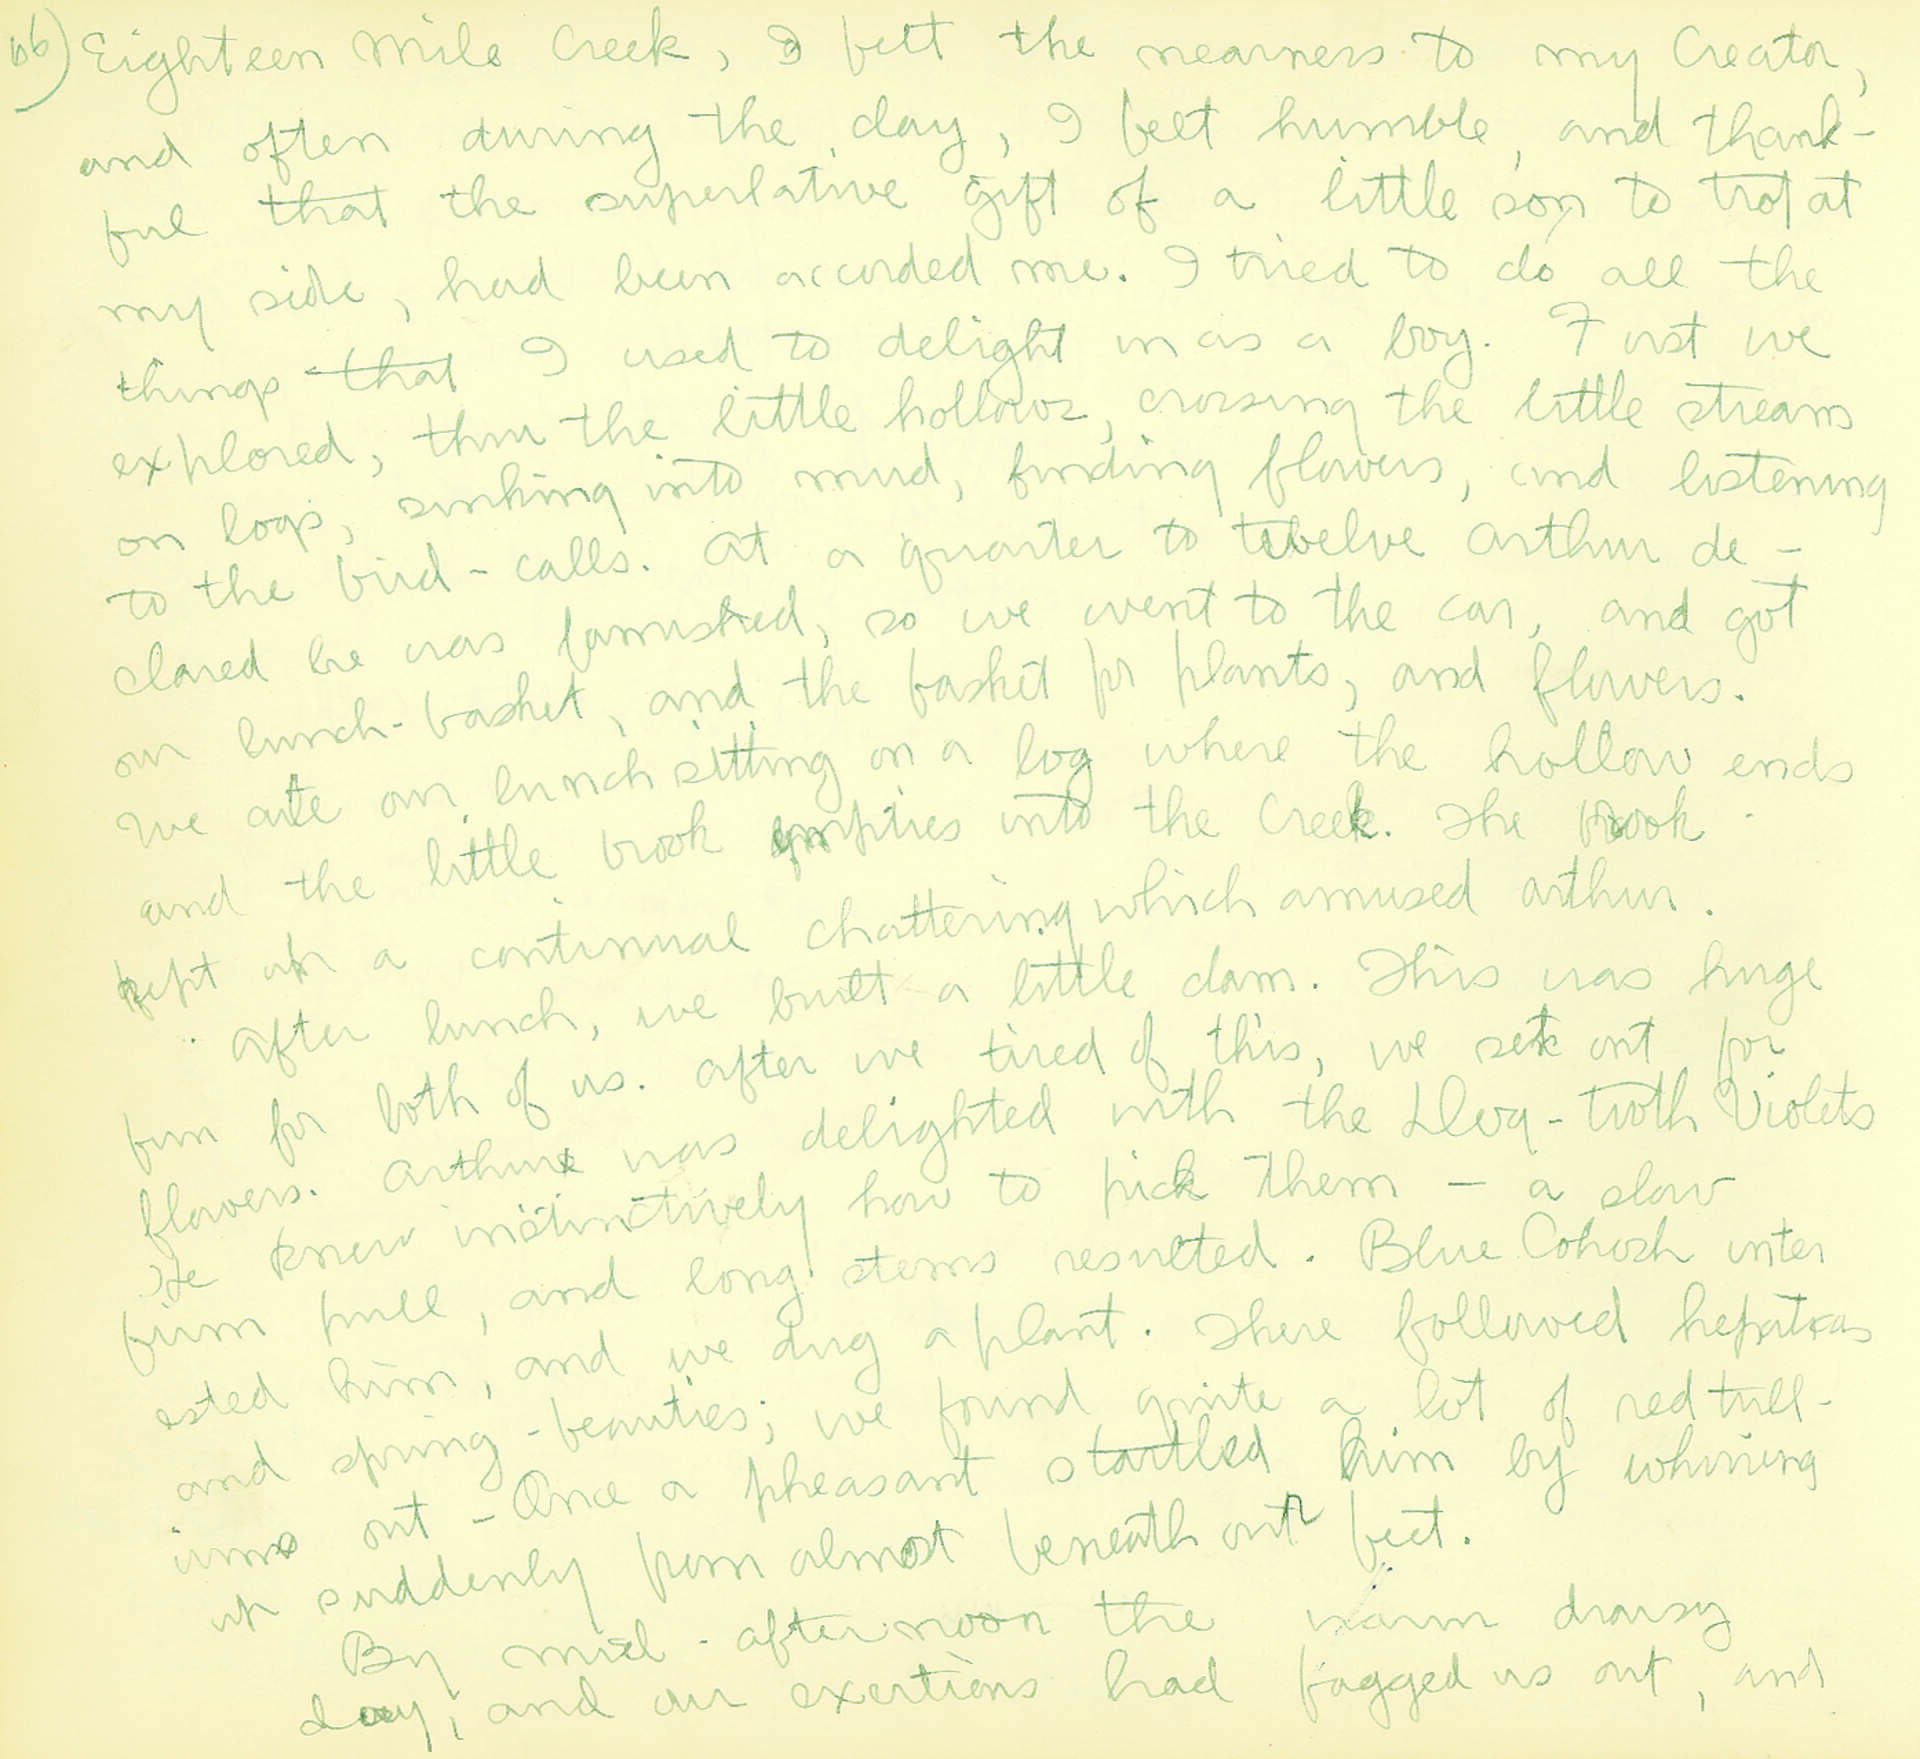 66) Eighteen Mile Creek, I felt the nearness to my Creator,
and often during the day, I felt humble, and thank-
ful that the superlative gift of a little son to trot at
my side, had been accorded me. I tried to do all the
things that I used to delight in as a boy. First we
explored, thru the little hollows, crossing the little streams
on logs, sinking into mud, finding flowers, and listening
to the bird-calls. At a quarter to twelve Arthur de-
clared he was famished, so we went to the car, and got
our lunch-basket, and the basket for plants, and flowers.
We ate our lunch sitting on a log where the hollow ends
and the little brook empties into the Creek. The brook
kept up a continual chattering which amused Arthur.
After lunch, we built a little dam. This was huge
fun for both of us. After we tired of this, we set out for
flowers. Arthur was delighted with the Dog-tooth Violets
He knew instinctively how to pick them — a slow
firm pull, and long stems resulted. Blue Cohosh inter
ested him, and we dug a plant. There followed hepaticas
and spring-beauties; we found quite a lot of red trill-
iums out - Once a pheasant startled him by whirring
up suddenly from almost beneath our feet.
By mid-afternoon the warm drowsy
day, and our exertions had fagged us out, and